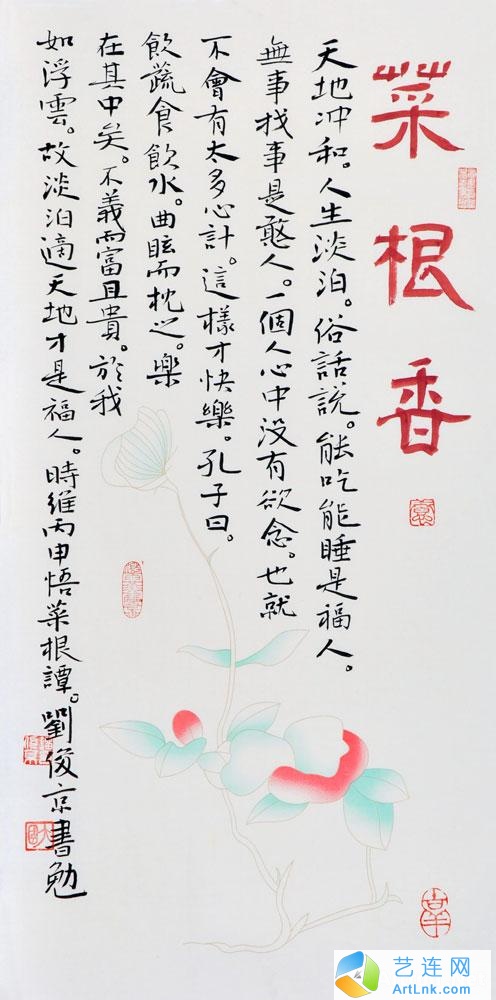 菜根香
天地冲和。人生淡泊。俗話說。能吃能睡是福人。
無事找事是憨人。一個人心中没有欲念。也就
不會有太多心計。這樣才快樂。孔子曰。
飲蔬食飲水。曲眩而枕之。樂
在其中矣。不義而富且貴。於我
如浮雲。故淡泊適天地才是福人。時維丙申悟菜根譚。劉俊京書勉
艺连网
ArtLnk.Com